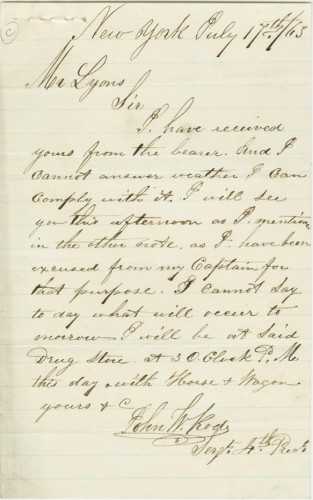 C
New York July 17th/63
Mr Lyons
Sir
I have received
yours from the bearer. And I
cannot answer weather I can
comply with it. I will see
you this afternoon as I mention
in the other note, as I have been
excused from my Captain for
that purpose. I cannot say
to day what will occur to
morrow I will be at said
Drug Store at 3 O Clock P. M
this day with Horse & Wagon
yours & C
John W.
Sergt. 4th Regt